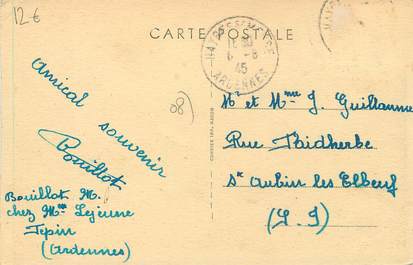 12€
CARTE POSTALE
HAYBES S/MEUSE
6 - 8
45
ARDENNES
08)
Amical souvenir
Bouillot
Mr et Mme J. Guillaume
Rue Faidherbe
St Aubin les Elbeuf
(S. I)
Bouillot M.
chez Mme Lejeune
Fépin
(Ardennes)